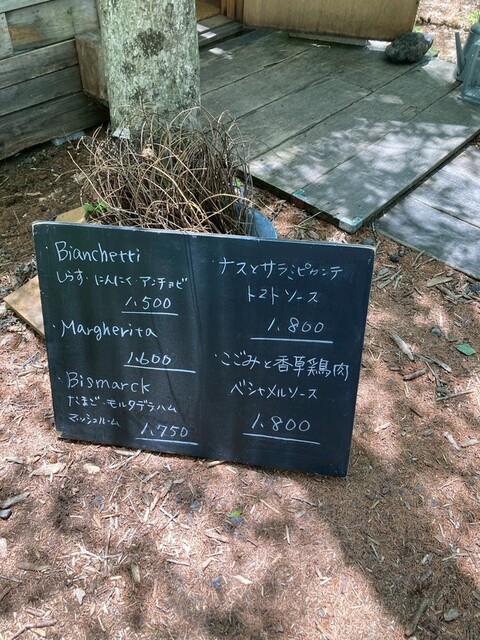 Bianchetti
しらす・にんにく・アンチョビ
1,500
・Margherita
1,600
・Bismarck
たまご・モルタデラハム
マッシュルーム
1,750
・ナスとサラミピカンテ
トマトソース
1,800
・こごみと香草鶏肉
ベシャメルソース
1,800